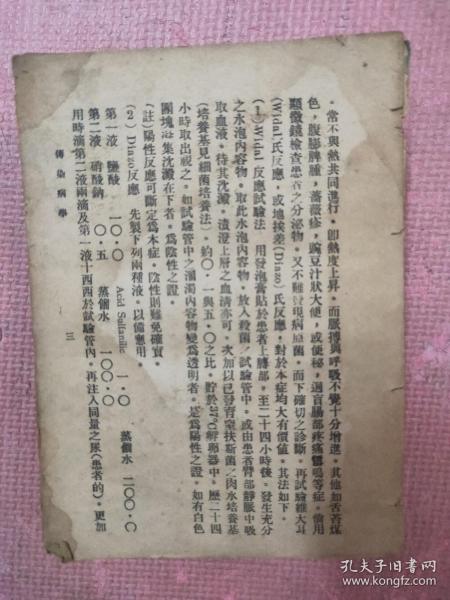 。常不與熱共同進行。卽熱度上昇。而脈搏與呼吸不覺十分增進。其他如舌苔煤
色，腹膨脾腫，薔薇疹，豌豆汁狀大便，或便秘，迴盲腸部疼痛雷鳴等症。倘用
顯微鏡檢查患者之分泌物。又不難發現病原菌。而下確切之診斷。再試維大耳
(Widal)氏反應，或地挨差(Diazo)氏反應，對於本症均大有價値。其法如下。
(1)Widal反應試驗法　用發泡膏貼於患者上膊部，至二十四小時後。發生充分
之水泡內容物。取此水泡內容物，放入殺菌ノ試驗管中。或由患者臂部靜脈中吸
取血液。待其沈澱。漬澄上層之血清亦可。次加以已發育窒扶斯菌之肉水培養基
(培養基見細菌培養法)。約〇．一與五．〇之比。貯於37°C孵卵器中。歷二十四
小時取出視之。如試驗管中之溷濁內容物變爲透明者。是爲陽性之證。如有白色
團塊凝集沈澱在下者。爲陰性之證。
(註)陽性反應可斷定爲本症。陰性則難免確實。
(2)Diazo反應　先製下列兩種液。以備應用。
第一液　鹽酸　一〇．〇　Acid Sulfanilic　一．〇　蒸餾水　二〇〇．C
第二液　硝酸鈉　〇．五　蒸餾水　一〇〇．〇
用時滴第二液兩滴及第一液十西西於試驗管內。再注入同量之尿(患者的)。更加
傳染病學　三
孔夫子旧书网
book.kongfz.com